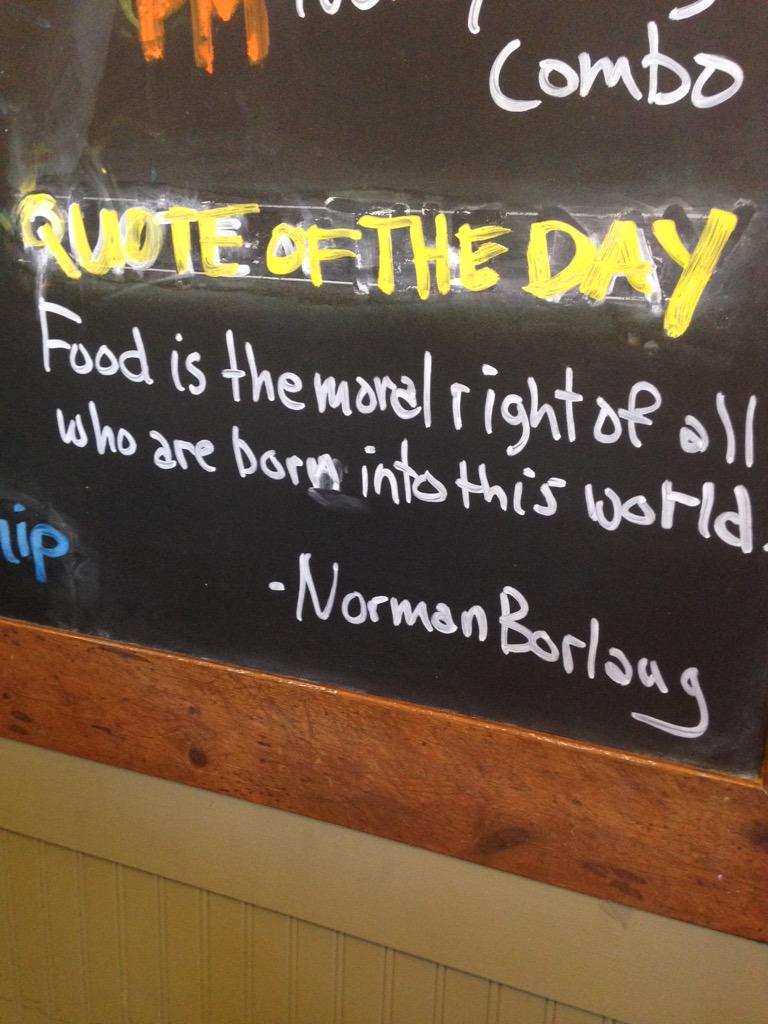 PM
Combo
QUOTE OF THE DAY
Food is the moral right of all
who are born into this world.
-Norman Borlaug